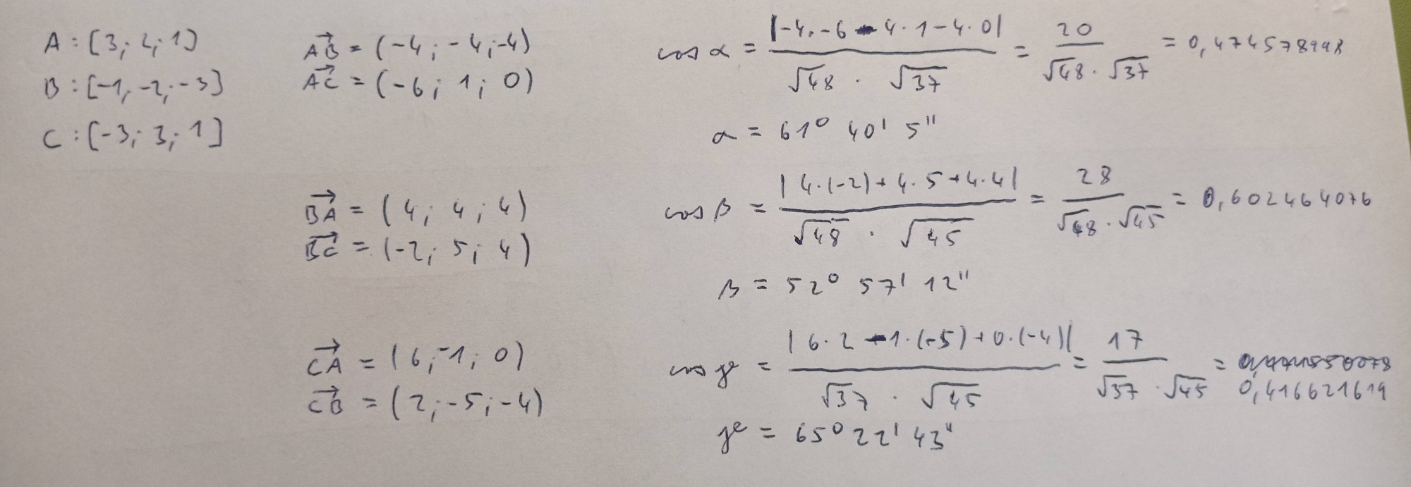 A : [3; 2; 1]
B : [-1, -2; -3]
C : [-3; 3; 1]
AB→ = (-4; -4; -4)
AC→ = (-6; 1; 0)
cos α = |-4·-6 - 4·1 - 4·0| / √48 · √37 = 20 / √48 · √37 = 0,474578998
α = 61° 40' 5"
BA→ = (4; 4; 4)
BC→ = (-2; 5; 4)
cos β = |4·(-2) + 4·5 + 4·4| / √48 · √45 = 28 / √48 · √45 = 0,602464076
β = 52° 57' 12"
CA→ = (6; -1; 0)
CB→ = (2; -5; -4)
cos γ = |6·2 - 1·(-5) + 0·(-4)| / √37 · √45 = 17 / √37 · √45 =
0,416621619
γ = 65° 22' 43"